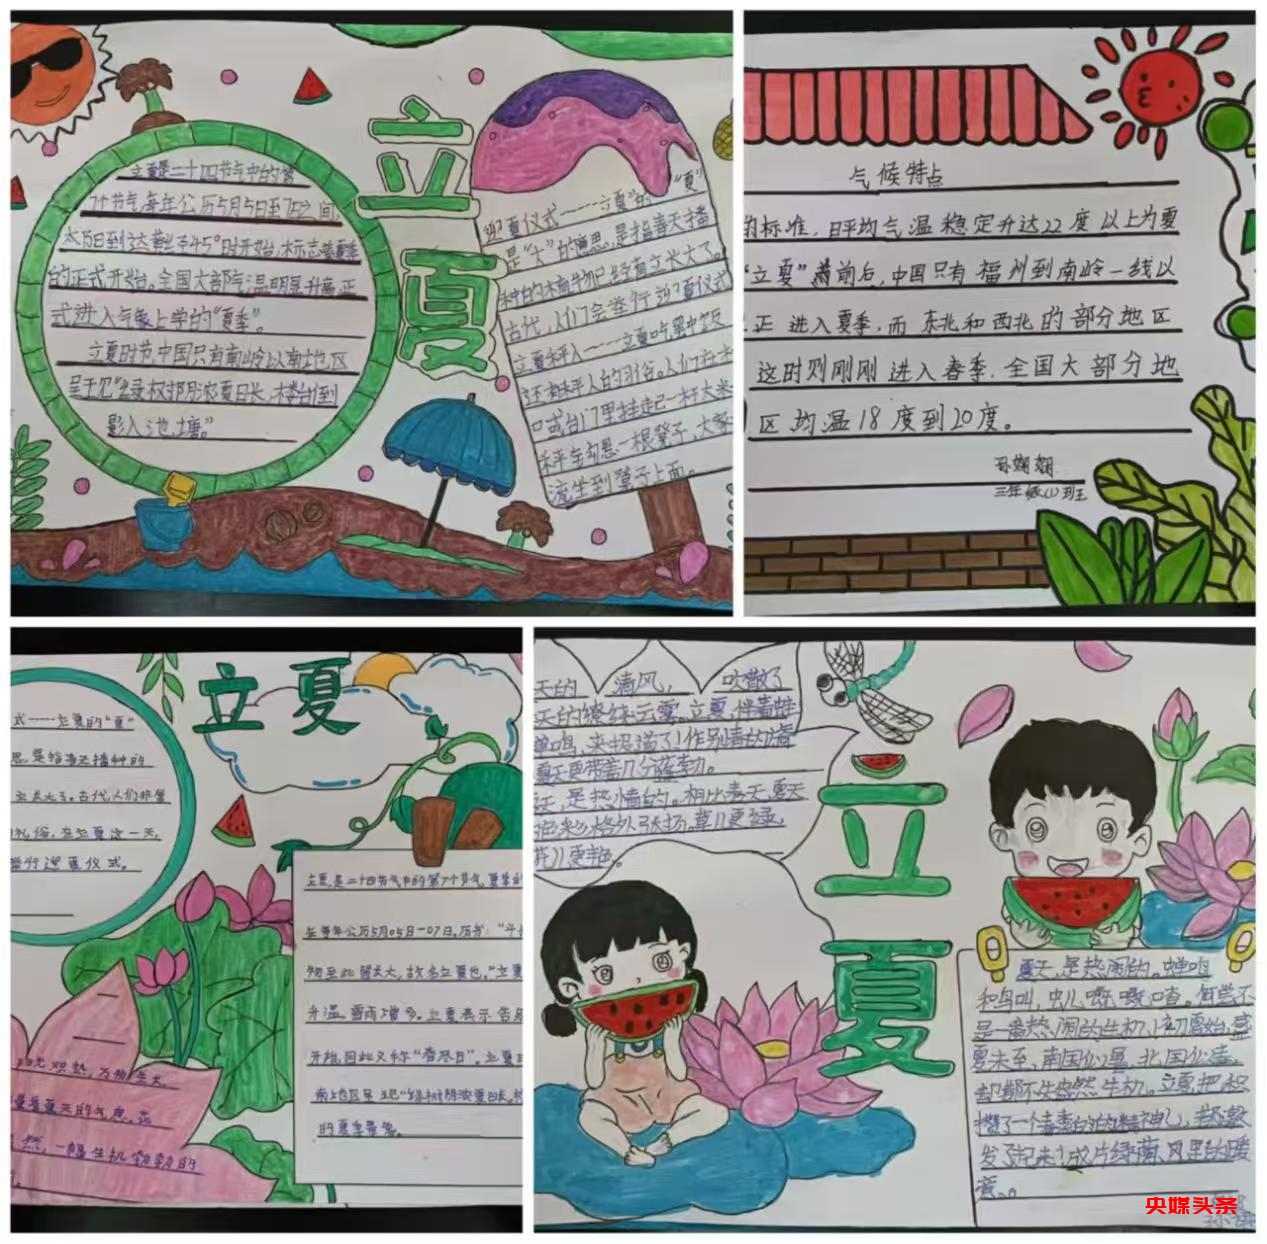 立夏
立夏是二十四节气中的第
7个节气,每年公历5月5日至7日之间,
太阳到达黄经45°时开始,标志着夏季
的正式开始。全国大部气温明显升高,正
式进入气象上学的“夏季”。
立夏时节,中国只有南岭以南地区
呈于见“绿
夏日长,楼台倒
影入池塘。”
迎夏仪式——立夏”的“夏”
是“大”的意思,是指春天播
种的植物已经直立长大了。
古代,人们会举行迎夏仪式
立夏秤人——立夏吃罢中饭
还有秤人的习俗。人们在村
口或台门里挂起一杆大木
秤,秤钩悬一根凳子,大家
流坐到凳子上面。
气候特点
的标准,日平均气温稳定升达22度以上为夏
“立夏”前后,中国只有福州到南岭一线以
正进入夏季,而东北和西北的部分地区
这时则刚刚进入春季,全国大部分地
区均温18度到20度。
三年级(1)班
立夏
式——立夏的“夏”
思,是指春天播种的
立长大了。古代,人们非常
礼俗,在立夏这一天,
举行迎夏仪式。
阳光炽热,万物生长。
着夏天的气息,
然,一幅生机勃勃的
立夏,是二十四节气中的第7个节气,夏季的
在每年公历5月05日-07日。历书:“斗指
物至此皆长大,故名立夏也。”立夏
升温,雷雨增多。立夏表示告别
开始,因此又称“春尽日”。立夏日
南地区呈现“绿树阴浓夏日长,楼
的夏季景象。
立夏
天的 清风, 吹散了
天的缭绕云雾。立夏,伴着蛙
蝉鸣,来报道了!作别春的
夏天更带着几分蓬勃。
是热情的。相比春天,夏天
色彩格外张扬,草儿更绿,
花儿更艳。
夏天,是热闹的。蝉鸣
和鸟叫,虫儿嘶嘶喳。何尝不
是一番热闹的生机,初露始,盛
夏未至,南国似暑,北国似春,
却都不失盎然生机。立夏把积
攒了一个春季的的精神儿,都激
发了起来!成片绿荫,风里的暖
意。
央媒头条